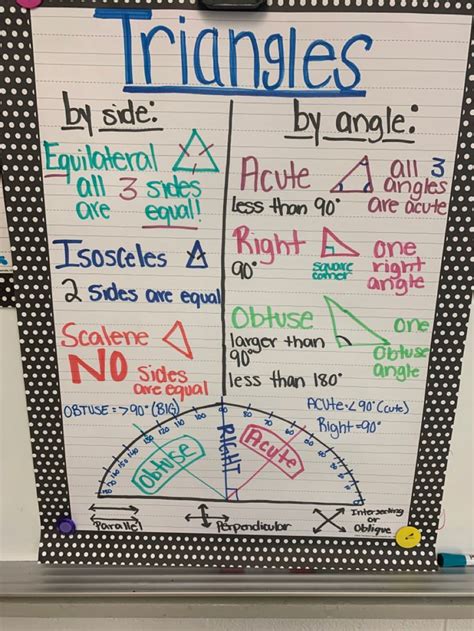 Triangles
by side:
Equilateral
all 3 sides
are equal!
Isosceles
2 sides are equal
Scalene
NO sides
are equal
by angle:
Acute
less than 90°
all 3
angles
are acute
Right
90°
square
corner
one
right
angle
Obtuse
larger than
90°
less than 180°
one
Obtuse
angle
OBTUSE = >90° (BIG)
ACUTE = <90° (cute)
Right = 90°
Obtuse
RIGHT
Acute
Parallel
Perpendicular
Intersecting
or
Oblique